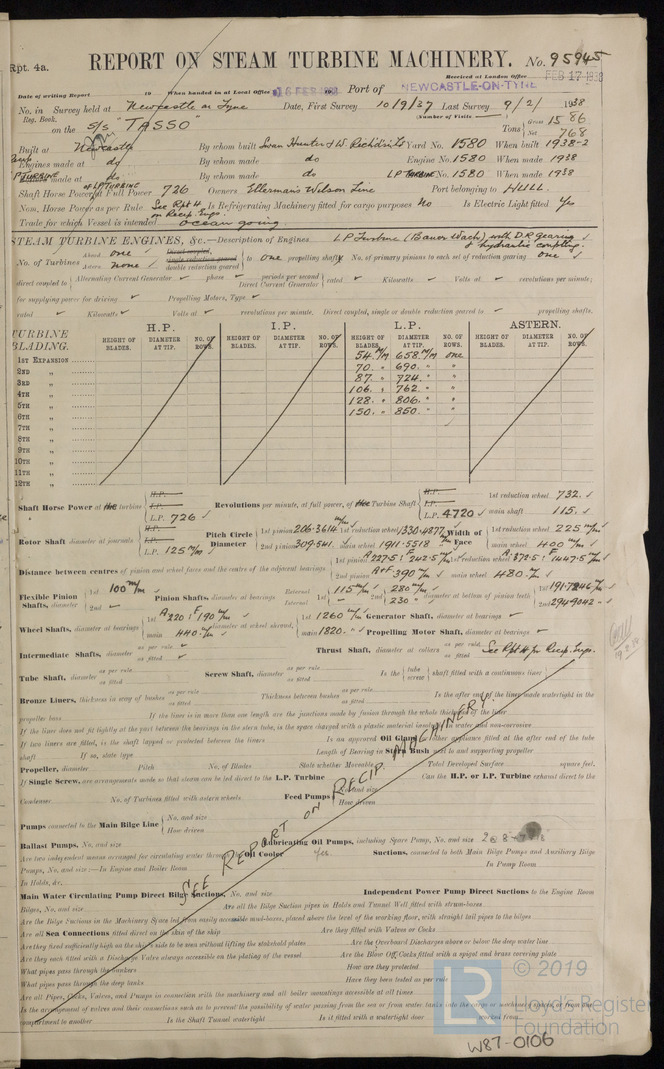 Rpt. 4a.
REPORT ON STEAM TURBINE MACHINERY. No. 95945
Received at London Office FEB 17 1938
Date of writing Report 19 When handed in at Local Office 16 FEB 1938 Port of NEWCASTLE-ON-TYNE
No. in Survey held at Newcastle on Tyne Date, First Survey 10/9/37 Last Survey 9/2/ 1938
Reg. Book. (Number of Visits
on the S/S "TASSO" Tons Gross 1586 Net 768
Built at Newcastle By whom built Swan Hunter & W. Richardson Yard No. 1580 When built 1938-2
Engines made at do By whom made do Engine No. 1580 When made 1938
LP TURBINE made at do By whom made do LP TURBINE No. 1580 When made 1938
Shaft Horse Power of LP TURBINE at Full Power 726 Owners Ellerman's Wilson Line Port belonging to HULL.
Nom. Horse Power as per Rule See Rpt 4 on Recip. Engs. Is Refrigerating Machinery fitted for cargo purposes No Is Electric Light fitted Yes
Trade for which Vessel is intended ocean going
STEAM TURBINE ENGINES, &c.—Description of Engines L.P Turbine (Bauer Wach) with D.R. gearing & hydraulic coupling.
No. of Turbines Ahead one Astern none Direct coupled, single reduction geared double reduction geared to one propelling shaft No. of primary pinions to each set of reduction gearing one
direct coupled to Alternating Current Generator phase periods per second Direct Current Generator rated Kilowatts Volts at revolutions per minute;
for supplying power for driving Propelling Motors, Type
rated Kilowatts Volts at revolutions per minute. Direct coupled, single or double reduction geared to propelling shafts.
TURBINE BLADING. H.P. I.P. L.P. ASTERN.
HEIGHT OF BLADES. DIAMETER AT TIP. NO. OF ROWS. HEIGHT OF BLADES. DIAMETER AT TIP. NO. OF ROWS. HEIGHT OF BLADES. DIAMETER AT TIP. NO. OF ROWS. HEIGHT OF BLADES. DIAMETER AT TIP. NO. OF ROWS.
1ST EXPANSION 54 m/m 658 m/m one
2ND „ 70 . 690 . "
3RD „ 87 . 724 . "
4TH „ 106 . 762 . "
5TH „ 128 . 806 . "
6TH „ 150 . 850 . "
7TH „
8TH „
9TH „
10TH „
11TH „
12TH „
Shaft Horse Power at the turbine H.P. I.P. L.P. 726 Revolutions per minute, at full power, of the Turbine Shaft H.P. I.P. L.P. 4720 1st reduction wheel 732. main shaft 115.
Rotor Shaft diameter at journals H.P. I.P. L.P. 125 m/m Pitch Circle Diameter 1st pinion 206.3614 m/m 1st reduction wheel 1330.4877 2nd pinion 309.541. main wheel 1911.5518 m/m Width of Face 1st reduction wheel 225 m/m main wheel 400 m/m
Distance between centres of pinion and wheel faces and the centre of the adjacent bearings 1st pinion A 227.5; F 242.5 m/m 1st reduction wheel A. 372.5 F 1447.5 m/m 2nd pinion A+F 390 m/m main wheel 480. m/m
Flexible Pinion Shafts, diameter 1st 100 m/m 2nd Pinion Shafts, diameter at bearings External 1st 115 m/m 2nd 280 m/m Internal 1st 2nd 230 " diameter at bottom of pinion teeth 1st 191.7246 m/m 2nd 294.9042
Wheel Shafts, diameter at bearings 1st A 220; F 190 m/m main 440 m/m diameter at wheel shroud, 1st 1260 m/m main 1820. Generator Shaft, diameter at bearings Propelling Motor Shaft, diameter at bearings
Intermediate Shafts, diameter as per rule as fitted Thrust Shaft, diameter at collars as per rule as fitted See Rpt 4 for Recip. Engs.
Tube Shaft, diameter as per rule as fitted Screw Shaft, diameter as per rule as fitted Is the tube screw shaft fitted with a continuous liner
Bronze Liners, thickness in way of bushes as per rule as fitted Thickness between bushes as per rule as fitted Is the after end of the liner made watertight in the
propeller boss If the liner is in more than one length are the junctions made by fusion through the whole thickness of the liner
If the liner does not fit tightly at the part between the bearings in the stern tube, is the space charged with a plastic material insoluble in water and non-corrosive
If two liners are fitted, is the shaft lapped or protected between the liners Is an approved Oil Gland or other appliance fitted at the after end of the tube
shaft If so, state type Length of Bearing in Stern Bush next to and supporting propeller
Propeller, diameter Pitch No. of Blades State whether Moveable Total Developed Surface square feet.
If Single Screw, are arrangements made so that steam can be led direct to the L.P. Turbine Can the H.P. or I.P. Turbine exhaust direct to the
Condenser No. of Turbines fitted with astern wheels Feed Pumps No. and size How driven
Pumps connected to the Main Bilge Line No. and size How driven
SEE REPORT ON RECIP. MACHINERY
Ballast Pumps, No. and size Lubricating Oil Pumps, including Spare Pump, No. and size 2 @
Are two independent means arranged for circulating water through the Oil Cooler yes. Suctions, connected to both Main Bilge Pumps and Auxiliary Bilge
Pumps, No. and size:—In Engine and Boiler Room In Pump Room
In Holds, &c.
Main Water Circulating Pump Direct Bilge Suctions, No. and size Independent Power Pump Direct Suctions to the Engine Room
Bilges, No. and size Are all the Bilge Suction pipes in Holds and Tunnel Well fitted with strum-boxes
Are the Bilge Suctions in the Machinery Space led from easily accessible mud-boxes, placed above the level of the working floor, with straight tail pipes to the bilges
Are all Sea Connections fitted direct on the skin of the ship Are they fitted with Valves or Cocks
Are they fixed sufficiently high on the ship's side to be seen without lifting the stokehold plates Are the Overboard Discharges above or below the deep water line
Are they each fitted with a Discharge Valve always accessible on the plating of the vessel Are the Blow Off Cocks fitted with a spigot and brass covering plate
What pipes pass through the bunkers How are they protected
What pipes pass through the deep tanks Have they been tested as per rule
Are all Pipes, Cocks, Valves, and Pumps in connection with the machinery and all boiler mountings accessible at all times
Is the arrangement of valves and their connections such as to prevent the possibility of water passing from the sea or from water tanks into the cargo or machinery spaces, or from one
compartment to another Is the Shaft Tunnel watertight Is it fitted with a watertight door worked from
© 2019
LR
Lloyd's Register
Foundation
W87-0106